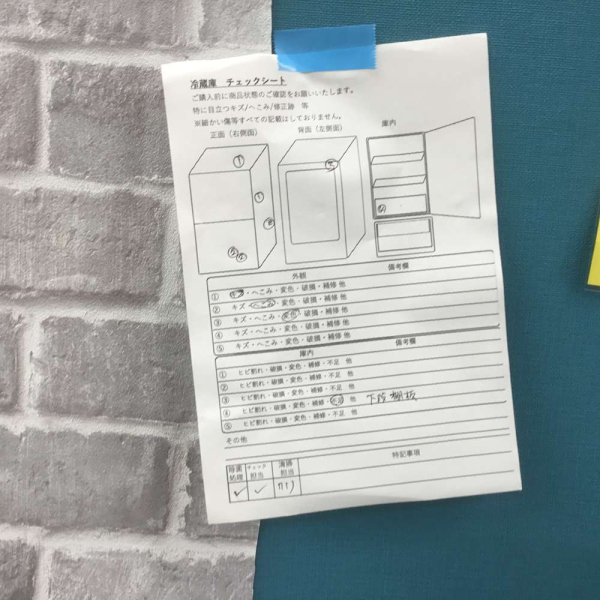 冷蔵庫 チェックシート
ご購入前に商品状態のご確認をお願いいたします。
特に目立つキズ/へこみ/修正跡 等
※細かい傷等すべての記載はしておりません。
正面（右側面） 背面（左側面） 庫内
外観 備考欄
① キズ・へこみ・変色・破損・補修 他
② キズ・へこみ・変色・破損・補修 他
③ キズ・へこみ・変色・破損・補修 他
④ キズ・へこみ・変色・破損・補修 他
⑤ キズ・へこみ・変色・破損・補修 他
庫内 備考欄
① ヒビ割れ・破損・変色・補修・不足 他
② ヒビ割れ・破損・変色・補修・不足 他
③ ヒビ割れ・破損・変色・補修・不足 他
④ ヒビ割れ・破損・変色・補修・不足 他 下段棚板
⑤ ヒビ割れ・破損・変色・補修・不足 他
その他
除菌処理 チェック担当 清掃担当 特記事項
✓ ✓